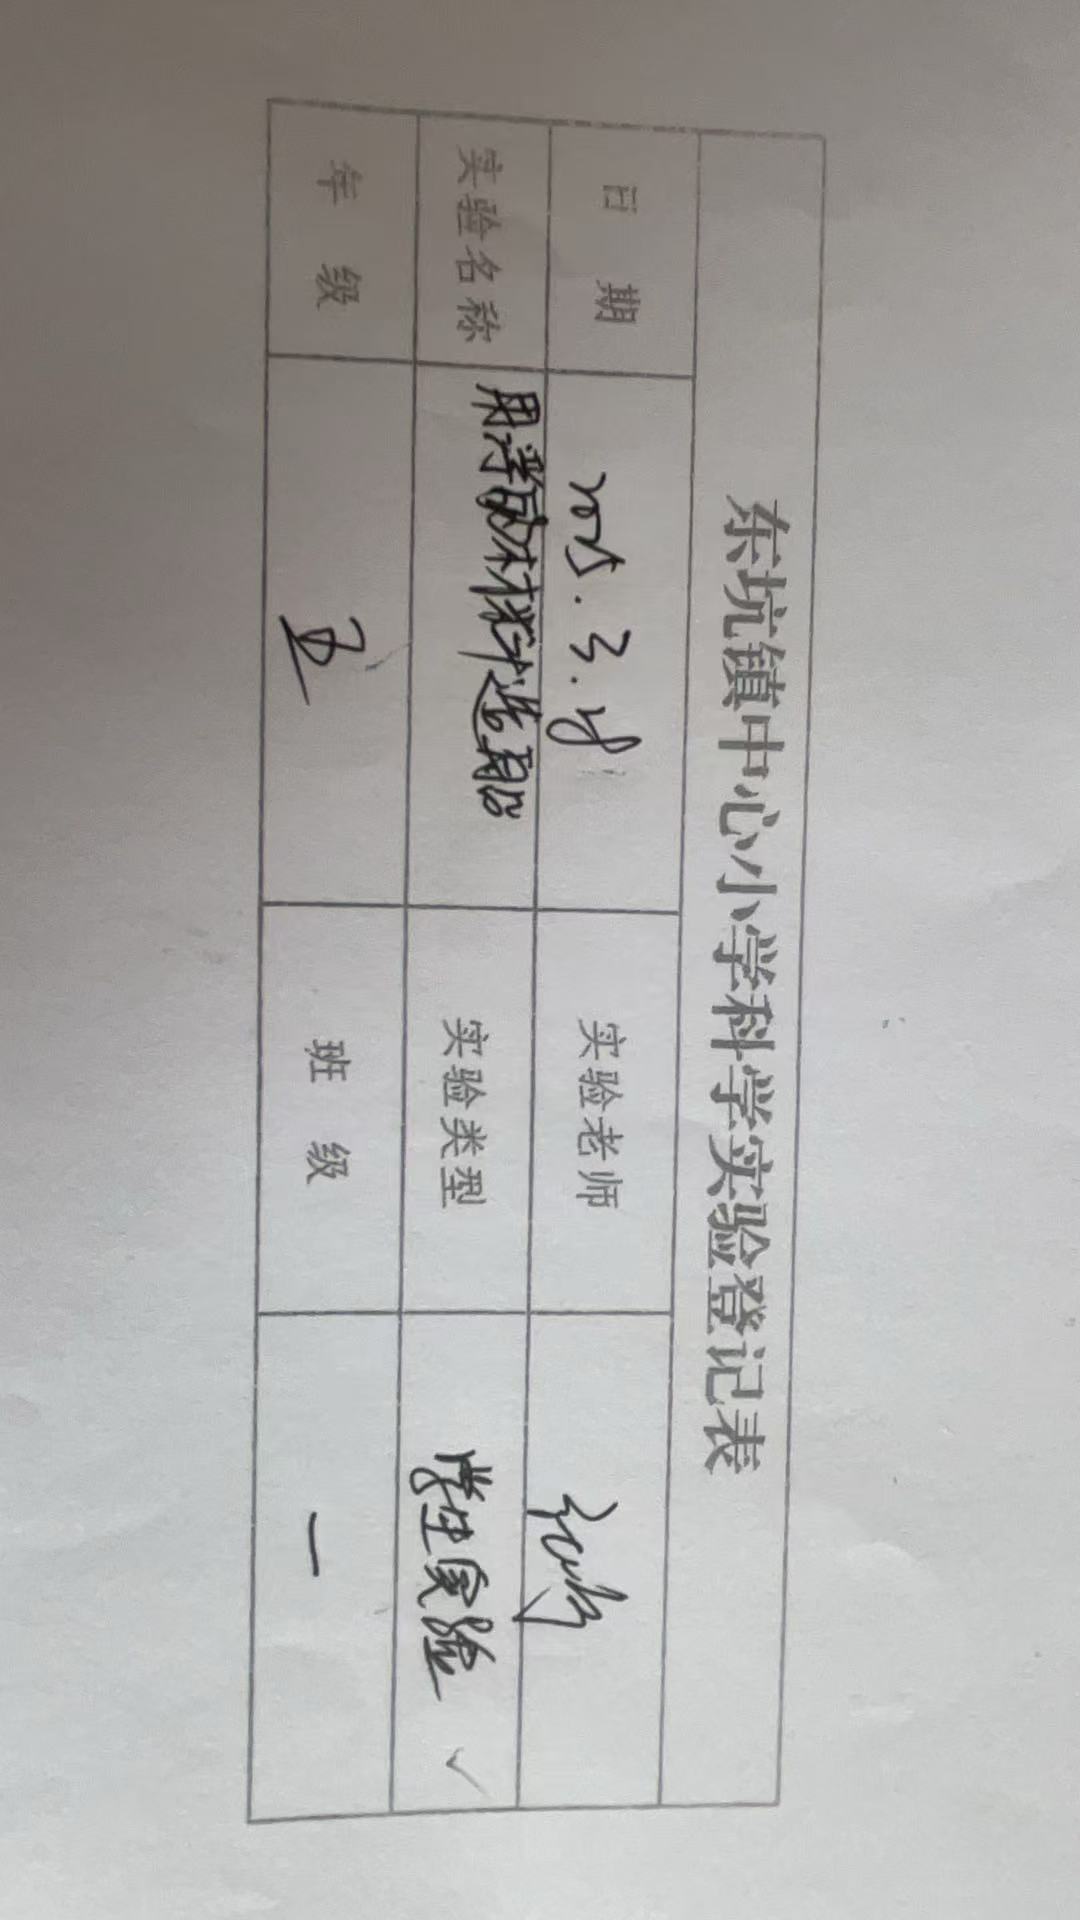 东坑镇中心小学科学实验登记表
日期 实验老师
实验名称 用浮的材料造船 实验类型 学生实验 ✓
年级 五 班级 一